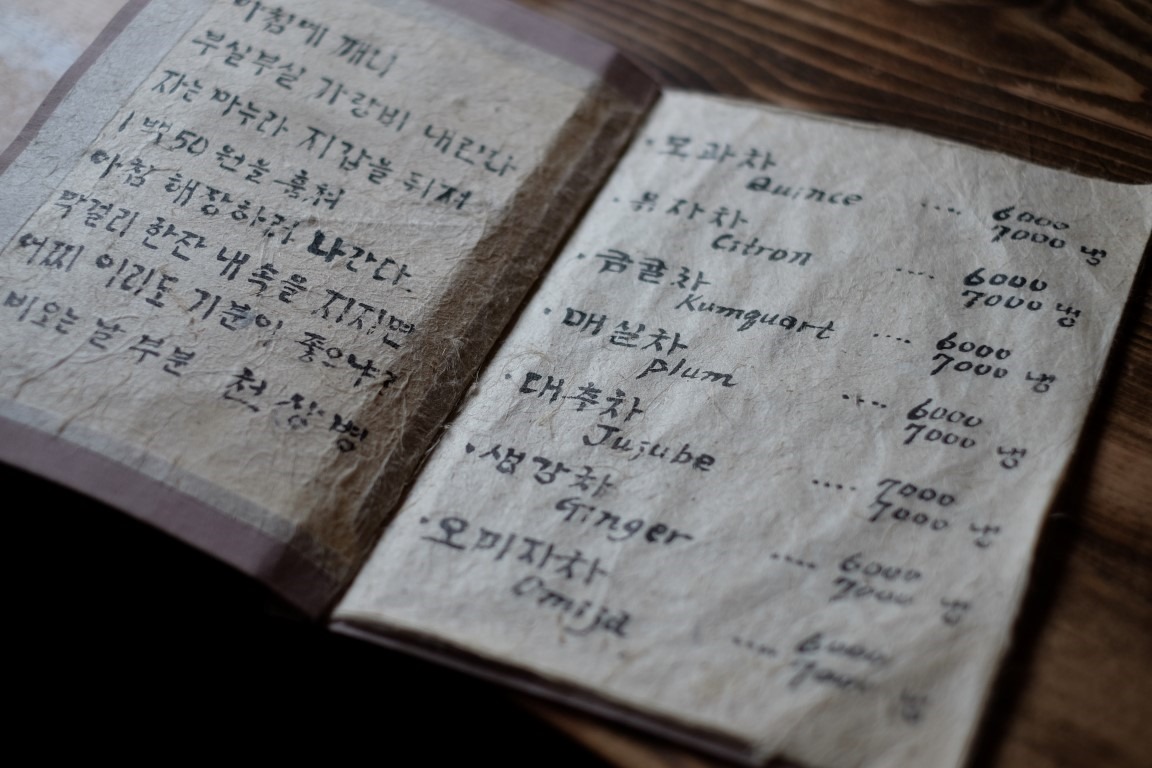 아침에 깨니
부실부실 가랑비 내린다
자는 마누라 지갑을 뒤져
1백50원을 훔쳐
아침 해장하러 나간다.
막걸리 한잔 내 속을 지지면
어찌 이리도 기분이 좋으냐?
비오는 날 부분 천상병
· 모과차
Quince .... 6000
7000 냉
· 유자차
Citron .... 6000
7000 냉
· 금귤차
Kumquart .... 6000
7000 냉
· 매실차
plum .... 6000
7000 냉
· 대추차
Jujube .... 7000
7000 냉
· 생강차
Ginger .... 6000
7000 냉
· 오미자차
Omija .... 6000
7000 냉